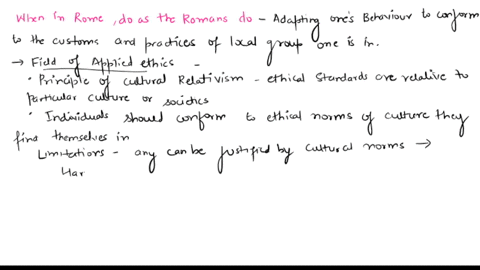 When in Rome, do as the Romans do - Adapting one's Behaviour to conform
to the customs and practices of local group one is in.
→ Field of Applied ethics -
• Principle of Cultural Relativism - ethical Standards are relative to
particular culture or societies
• Individuals should conform to ethical norms of culture they
find themselves in
Limitations - any can be justified by cultural norms →
Har